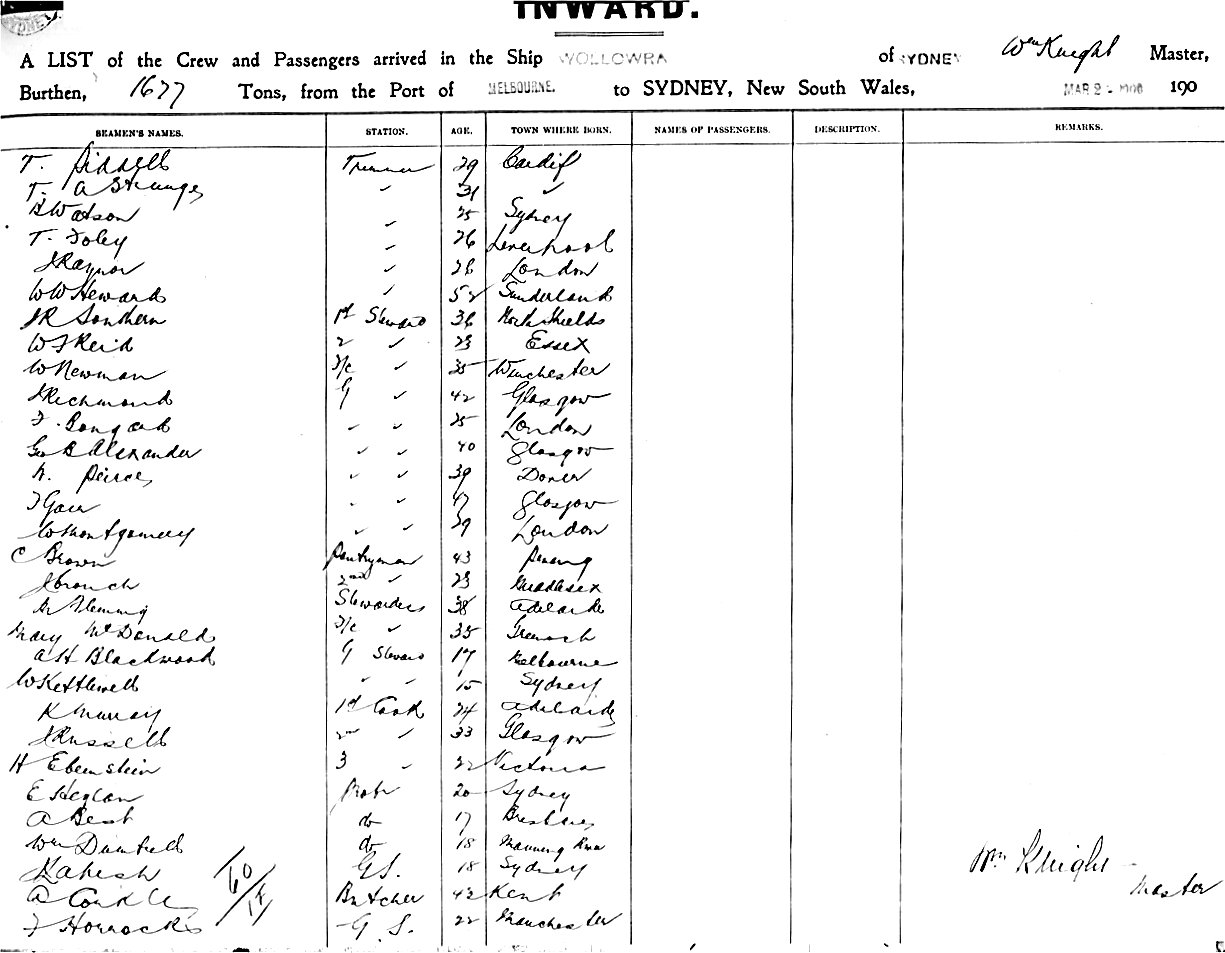 INWARD.
A LIST of the Crew and Passengers arrived in the Ship WOLLOWRA of SYDNEY Wm Knight Master,
Burthen, 1677 Tons, from the Port of MELBOURNE. to SYDNEY, New South Wales, MAR 2 1906 190
SEAMEN'S NAMES. STATION. AGE. TOWN WHERE BORN. NAMES OF PASSENGERS. DESCRIPTION. REMARKS.
T. Siddell Trimmer 29 Cardif
T. A Strange " 31 "
Watson " 25 Sydney
T. Foley " 26 Liverpool
J Raynor " 26 London
W W Heward " 52 Sunderland
J R Southern 1st Steward 36 North Shields
W J Reid 2 " 23 Essex
W Newman F/c " 35 Winchester
J Richmond G " 42 Glasgow
" " 25 London
Geo B Alexander " " 40 Glasgow
Peirce " " 39 Dover
" " 17 Glasgow
W Montgomery " " 29 London
C Brown Pantryman 43 Penang
J Crouch 2nd " 23 Middlesex
Fleming Stewardess 38 Adelaide
Mary McDonald F/c " 35 Greenock
A H Blackwood G Steward 17 Melbourne
W Kettlewell " " 15 Sydney
K Murray 1st Cook 24 Adelaide
J Russell 2nd " 33 Glasgow
H Ebenstein 3 " 22 Victoria
E Heylan 20 Sydney
A Best do 17 Brisbane
Wm do 18 Manning River
G.S. 18 Sydney
A Butcher 42 Kent
F Horrocks G.S. 22 Manchester
60/14
Wm Knight
Master